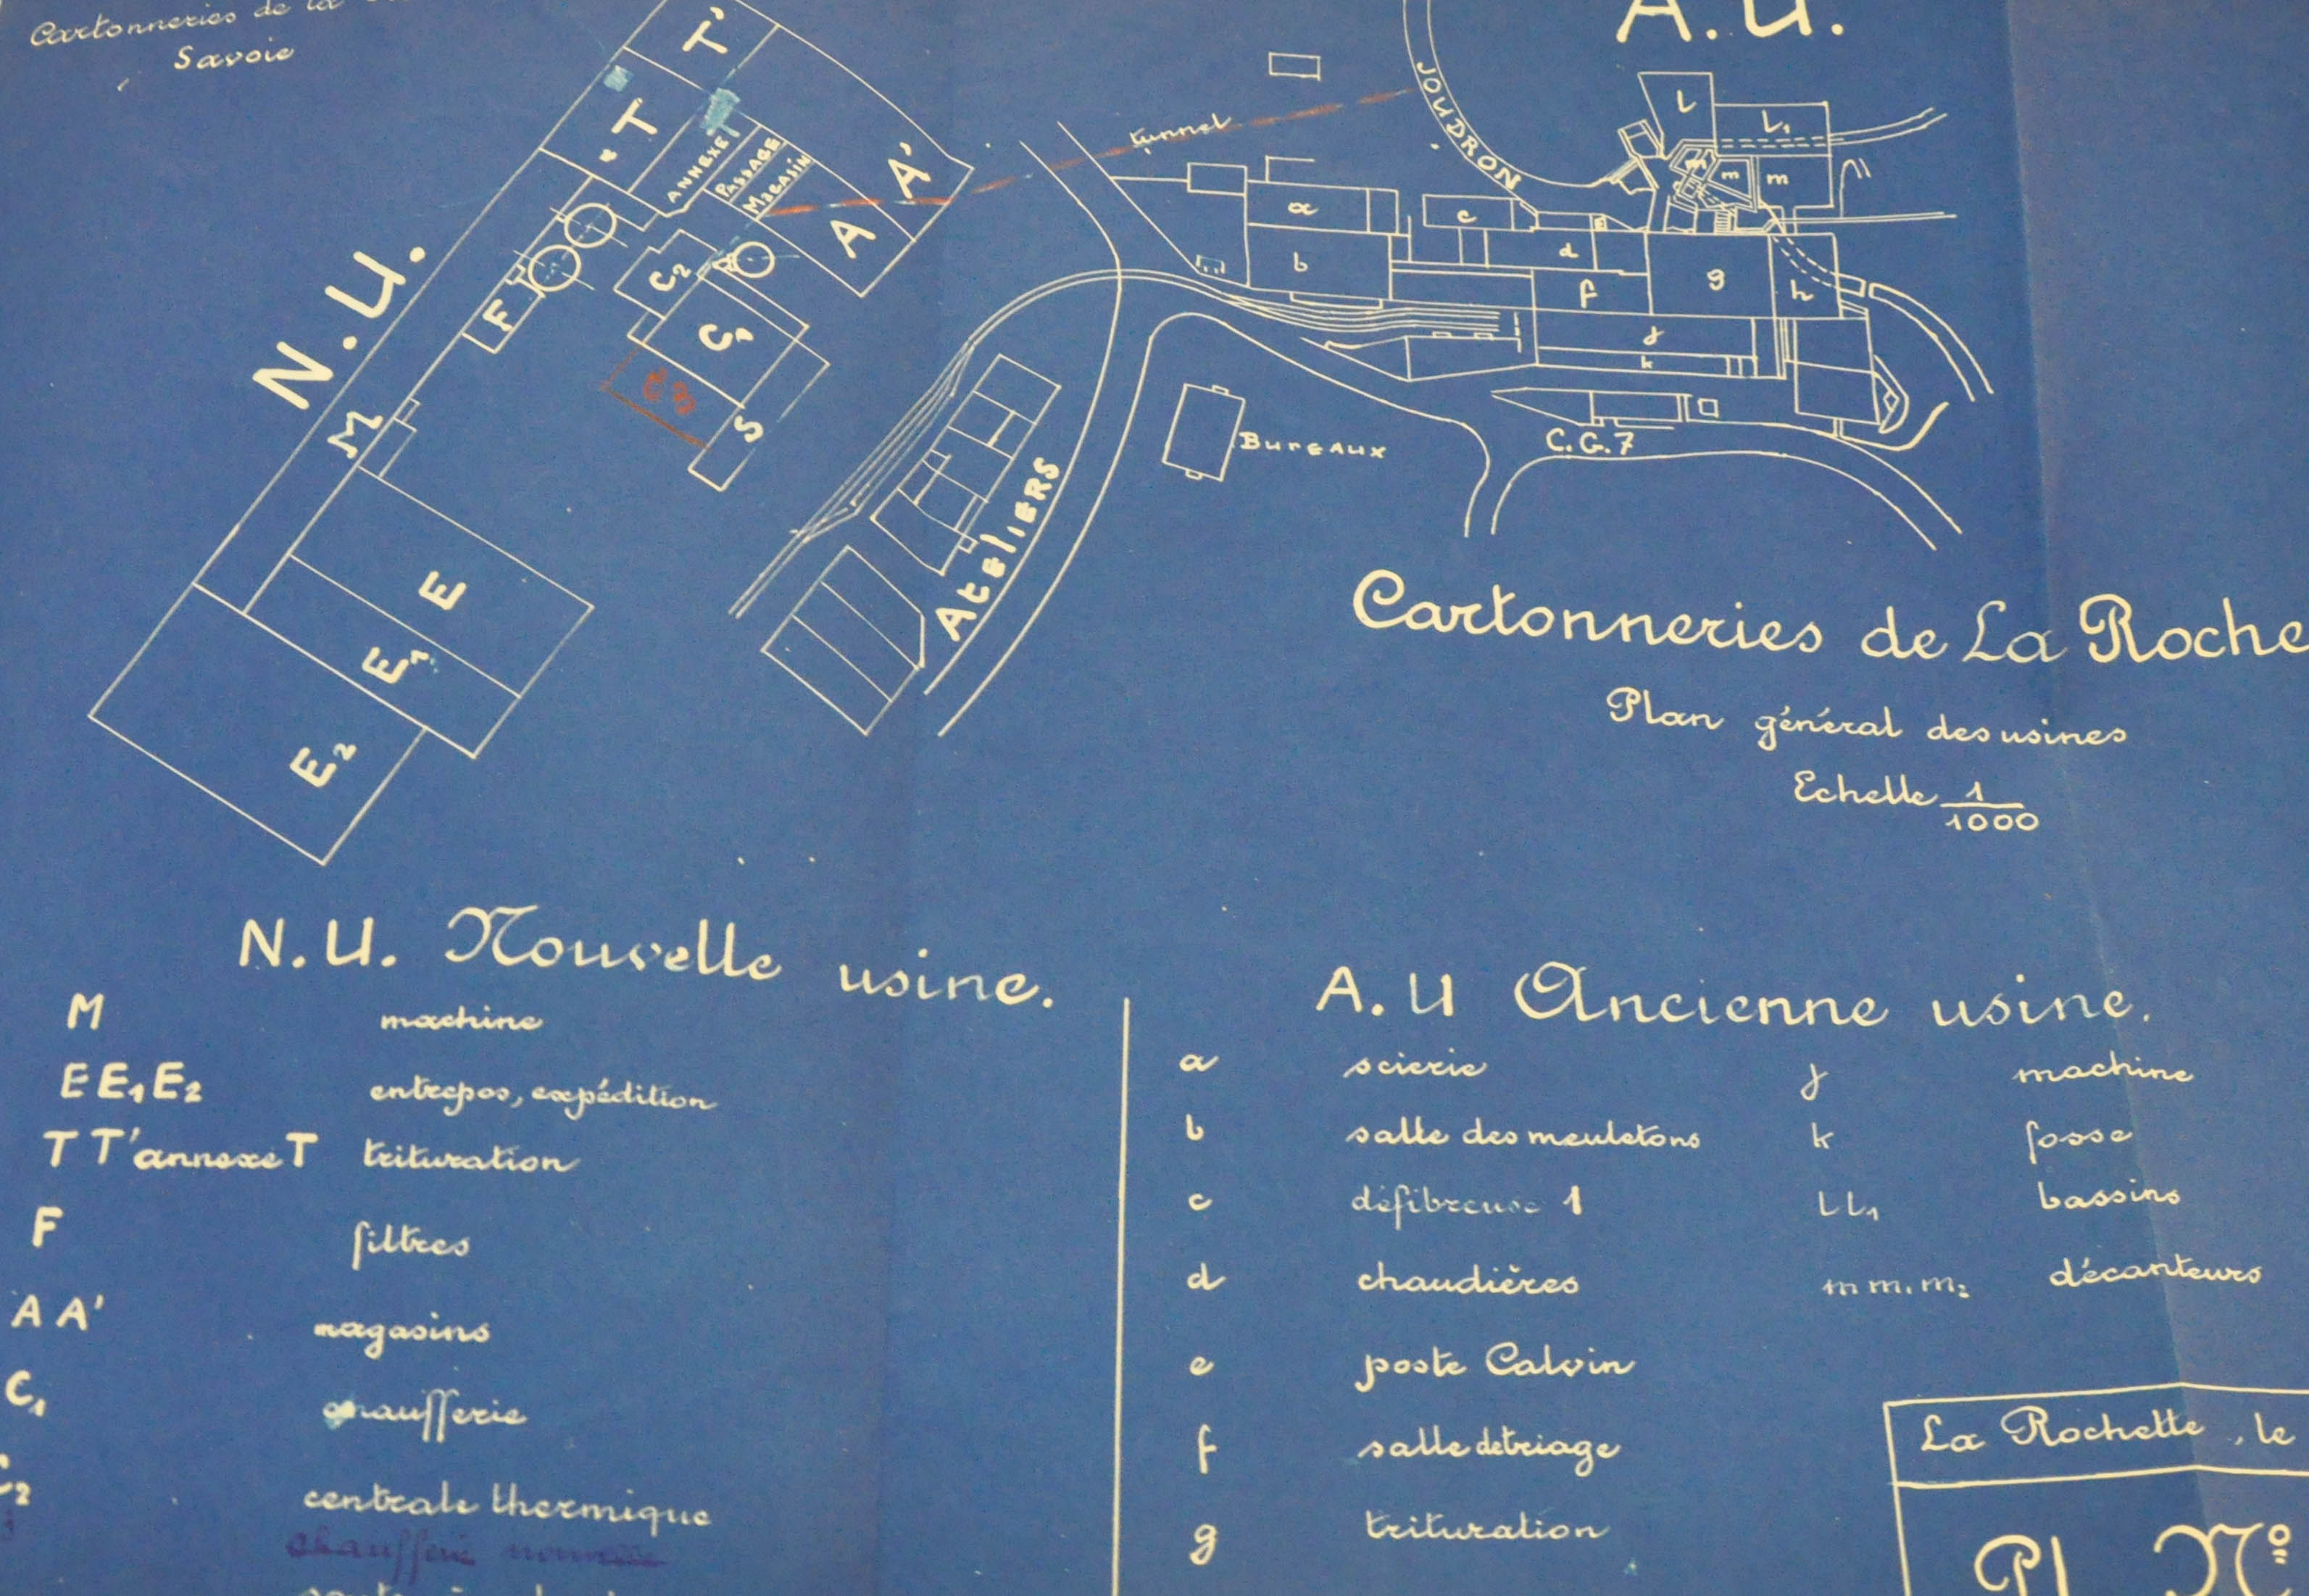 Cartonneries de la
Savoie
A.U.
T'
T
ANNEXE
PASSAGE
MAGASIN
A
A'
tunnel
JOUDRON
L
L1
m
m
m
a
b
c
d
e
f
g
h
j
k
N.U.
F
C2
C1
C3
S
M
E
E1
E2
AteliERS
BUREAUX
C.G.7
Cartonneries de La Roche
Plan général des usines
Echelle 1/1000
N.U. Nouvelle usine.
M machine
E E1 E2 entrepos, expédition
T T' annexe T trituration
F filtres
A A' magasins
C1 chaufferie
C2 centrale thermique
chaufferie nouvelle
A.U Ancienne usine.
a scierie j machine
b salle des meuletons k fosse
c défibreuse 1 L L1 bassins
d chaudières m m1 m2 décanteurs
e poste Calvin
f salle de triage
g trituration
La Rochette, le
Pl No